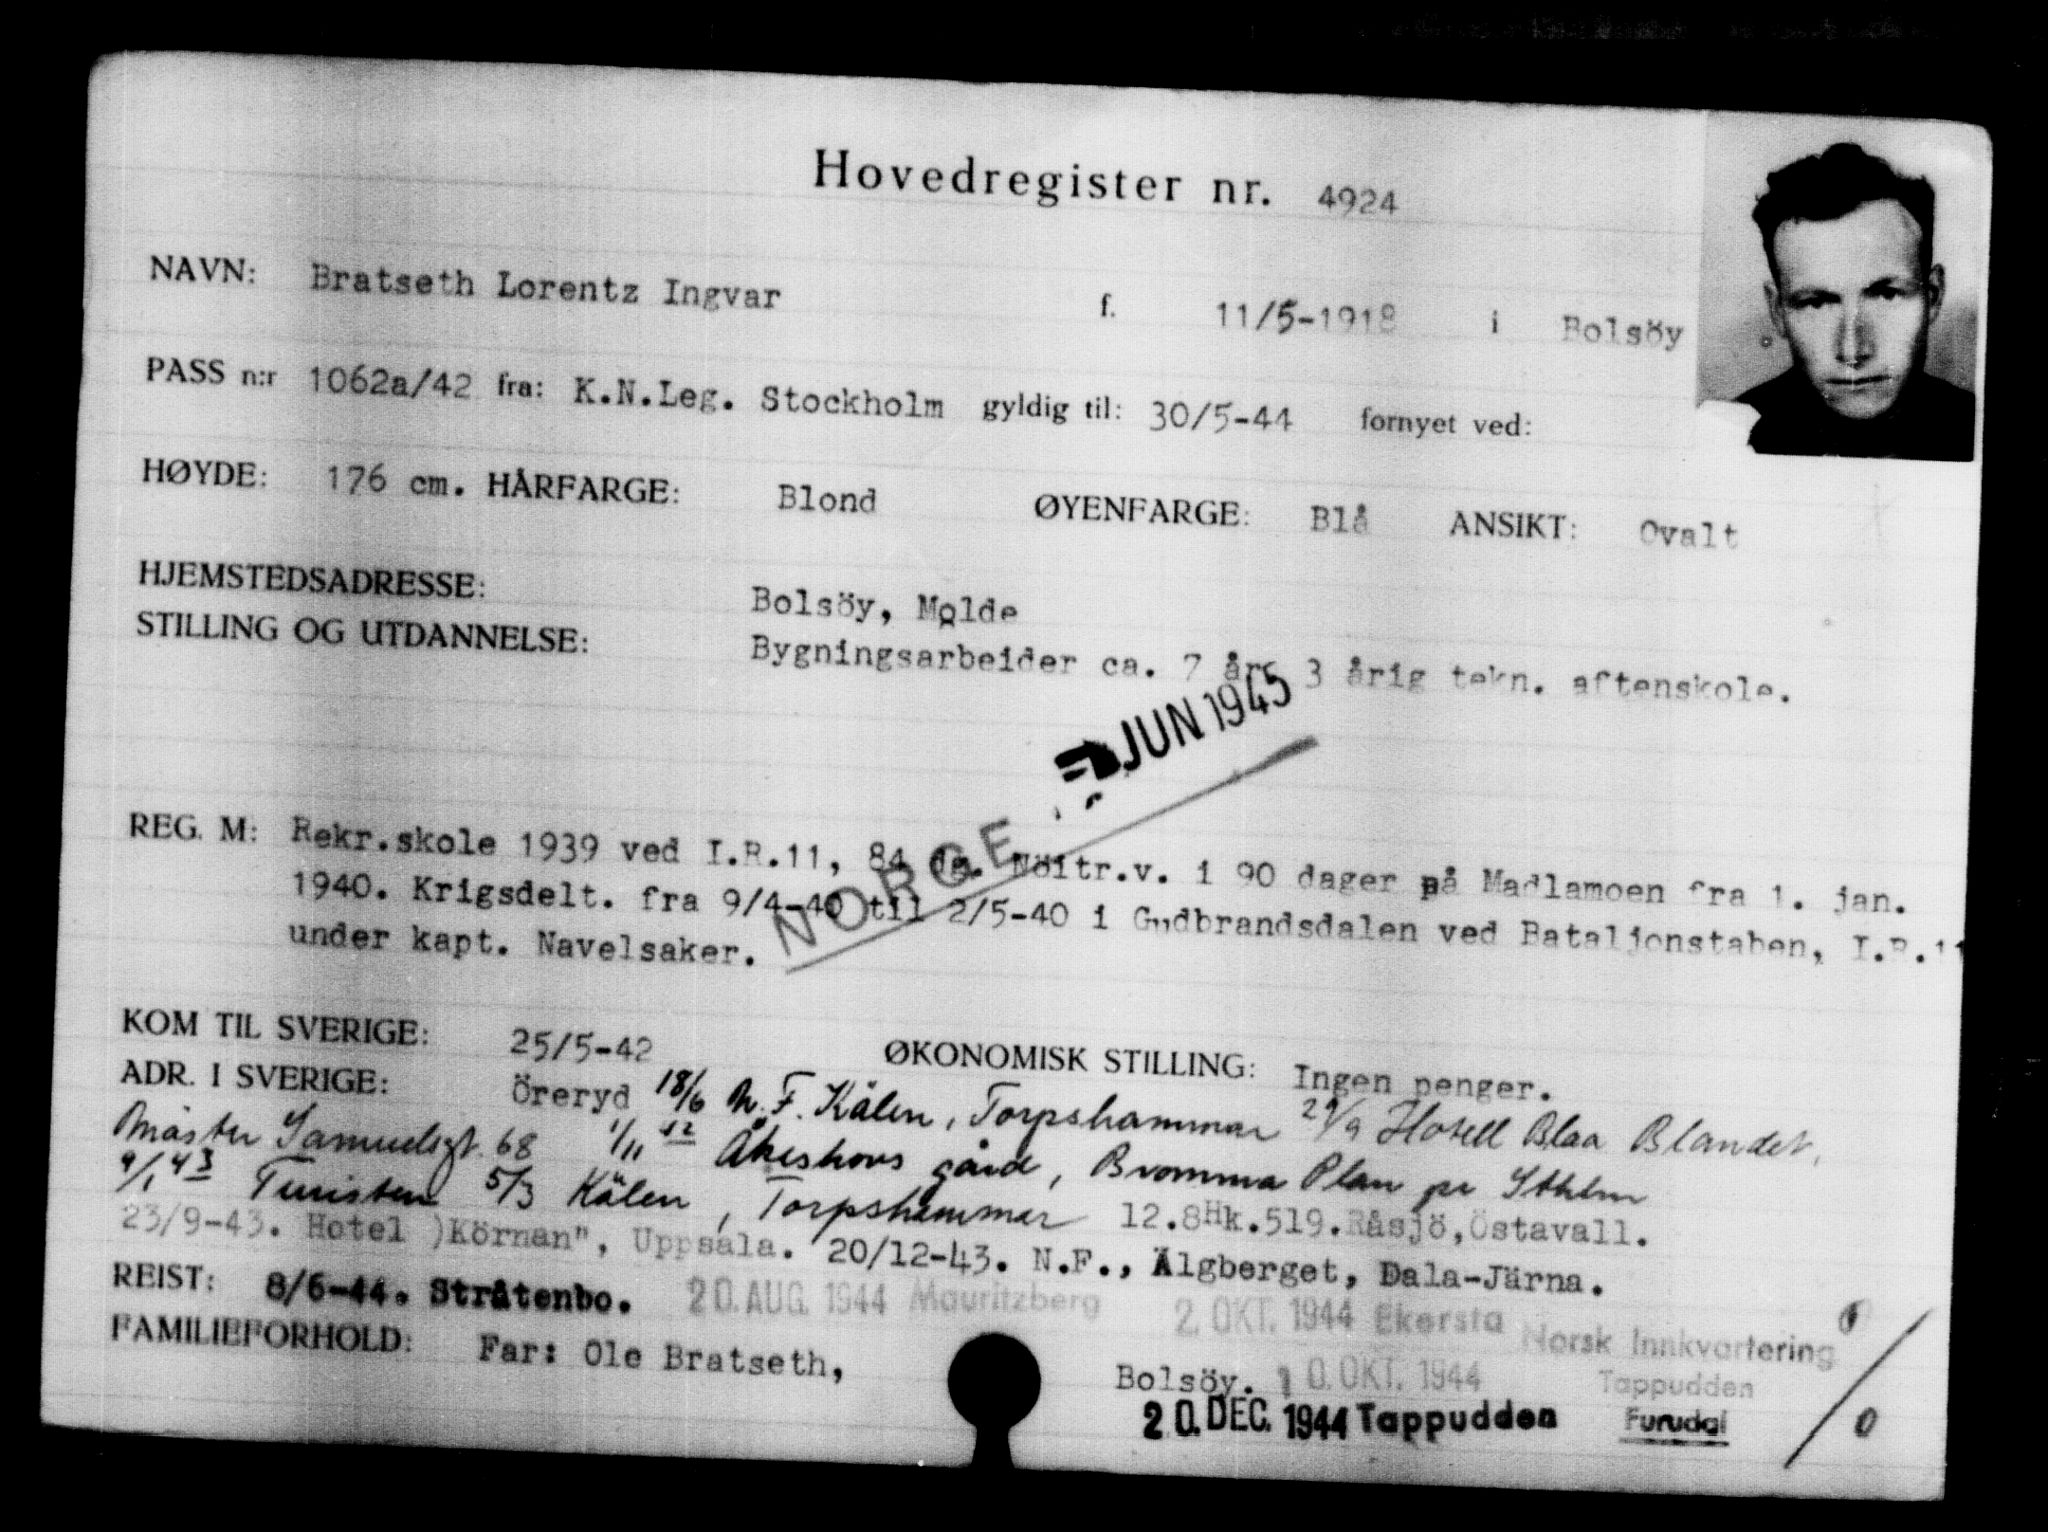 Hovedregister nr. 4924
NAVN: Bratseth Lorentz Ingvar f. 11/5-1918 i Bolsöy
PASS n:r 1062a/42 fra: K.N.Leg. Stockholm gyldig til: 30/5-44 fornyet ved:
HØYDE: 176 cm. HÅRFARGE: Blond ØYENFARGE: Blå ANSIKT: Ovalt
HJEMSTEDSADRESSE: Bolsöy, Molde
STILLING OG UTDANNELSE: Bygningsarbeider ca. 7 år. 3 årig tekn. aftenskole.
JUN 1945
NORGE
REG. M: Rekr.skole 1939 ved I.R.11, 84 dg. Nöitr.v. i 90 dager på Madlamoen fra 1. jan.
1940. Krigsdelt. fra 9/4-40 til 2/5-40 i Gudbrandsdalen ved Bataljonstaben, I.R.11
under kapt. Navelsaker.
KOM TIL SVERIGE: 25/5-42 ØKONOMISK STILLING: Ingen penger.
ADR. I SVERIGE: Öreryd 18/6 N.F. Kälen, Torpshammar 29/9 Hotell Blaa Blandet,
Mäster Samuelsgt. 68 1/11 42 Åkeshovs gård, Bromma Plan pr Sthlm
9/1 43 Turisten 5/3 Kälen, Torpshammar 12.8 Hk.519.Råsjö,Östavall.
23/9-43. Hotel )Körnan", Uppsala. 20/12-43. N.F., Älgberget, Dala-Järna.
REIST: 8/6-44. Stråtenbo. 20. AUG. 1944 Mauritzberg 2. OKT. 1944 Ekersta Norsk Innkvartering
FAMILIEFORHOLD: Far: Ole Bratseth, Bolsöy. 10. OKT. 1944 Tappudden
20. DEC. 1944 Tappudden Furudal 0